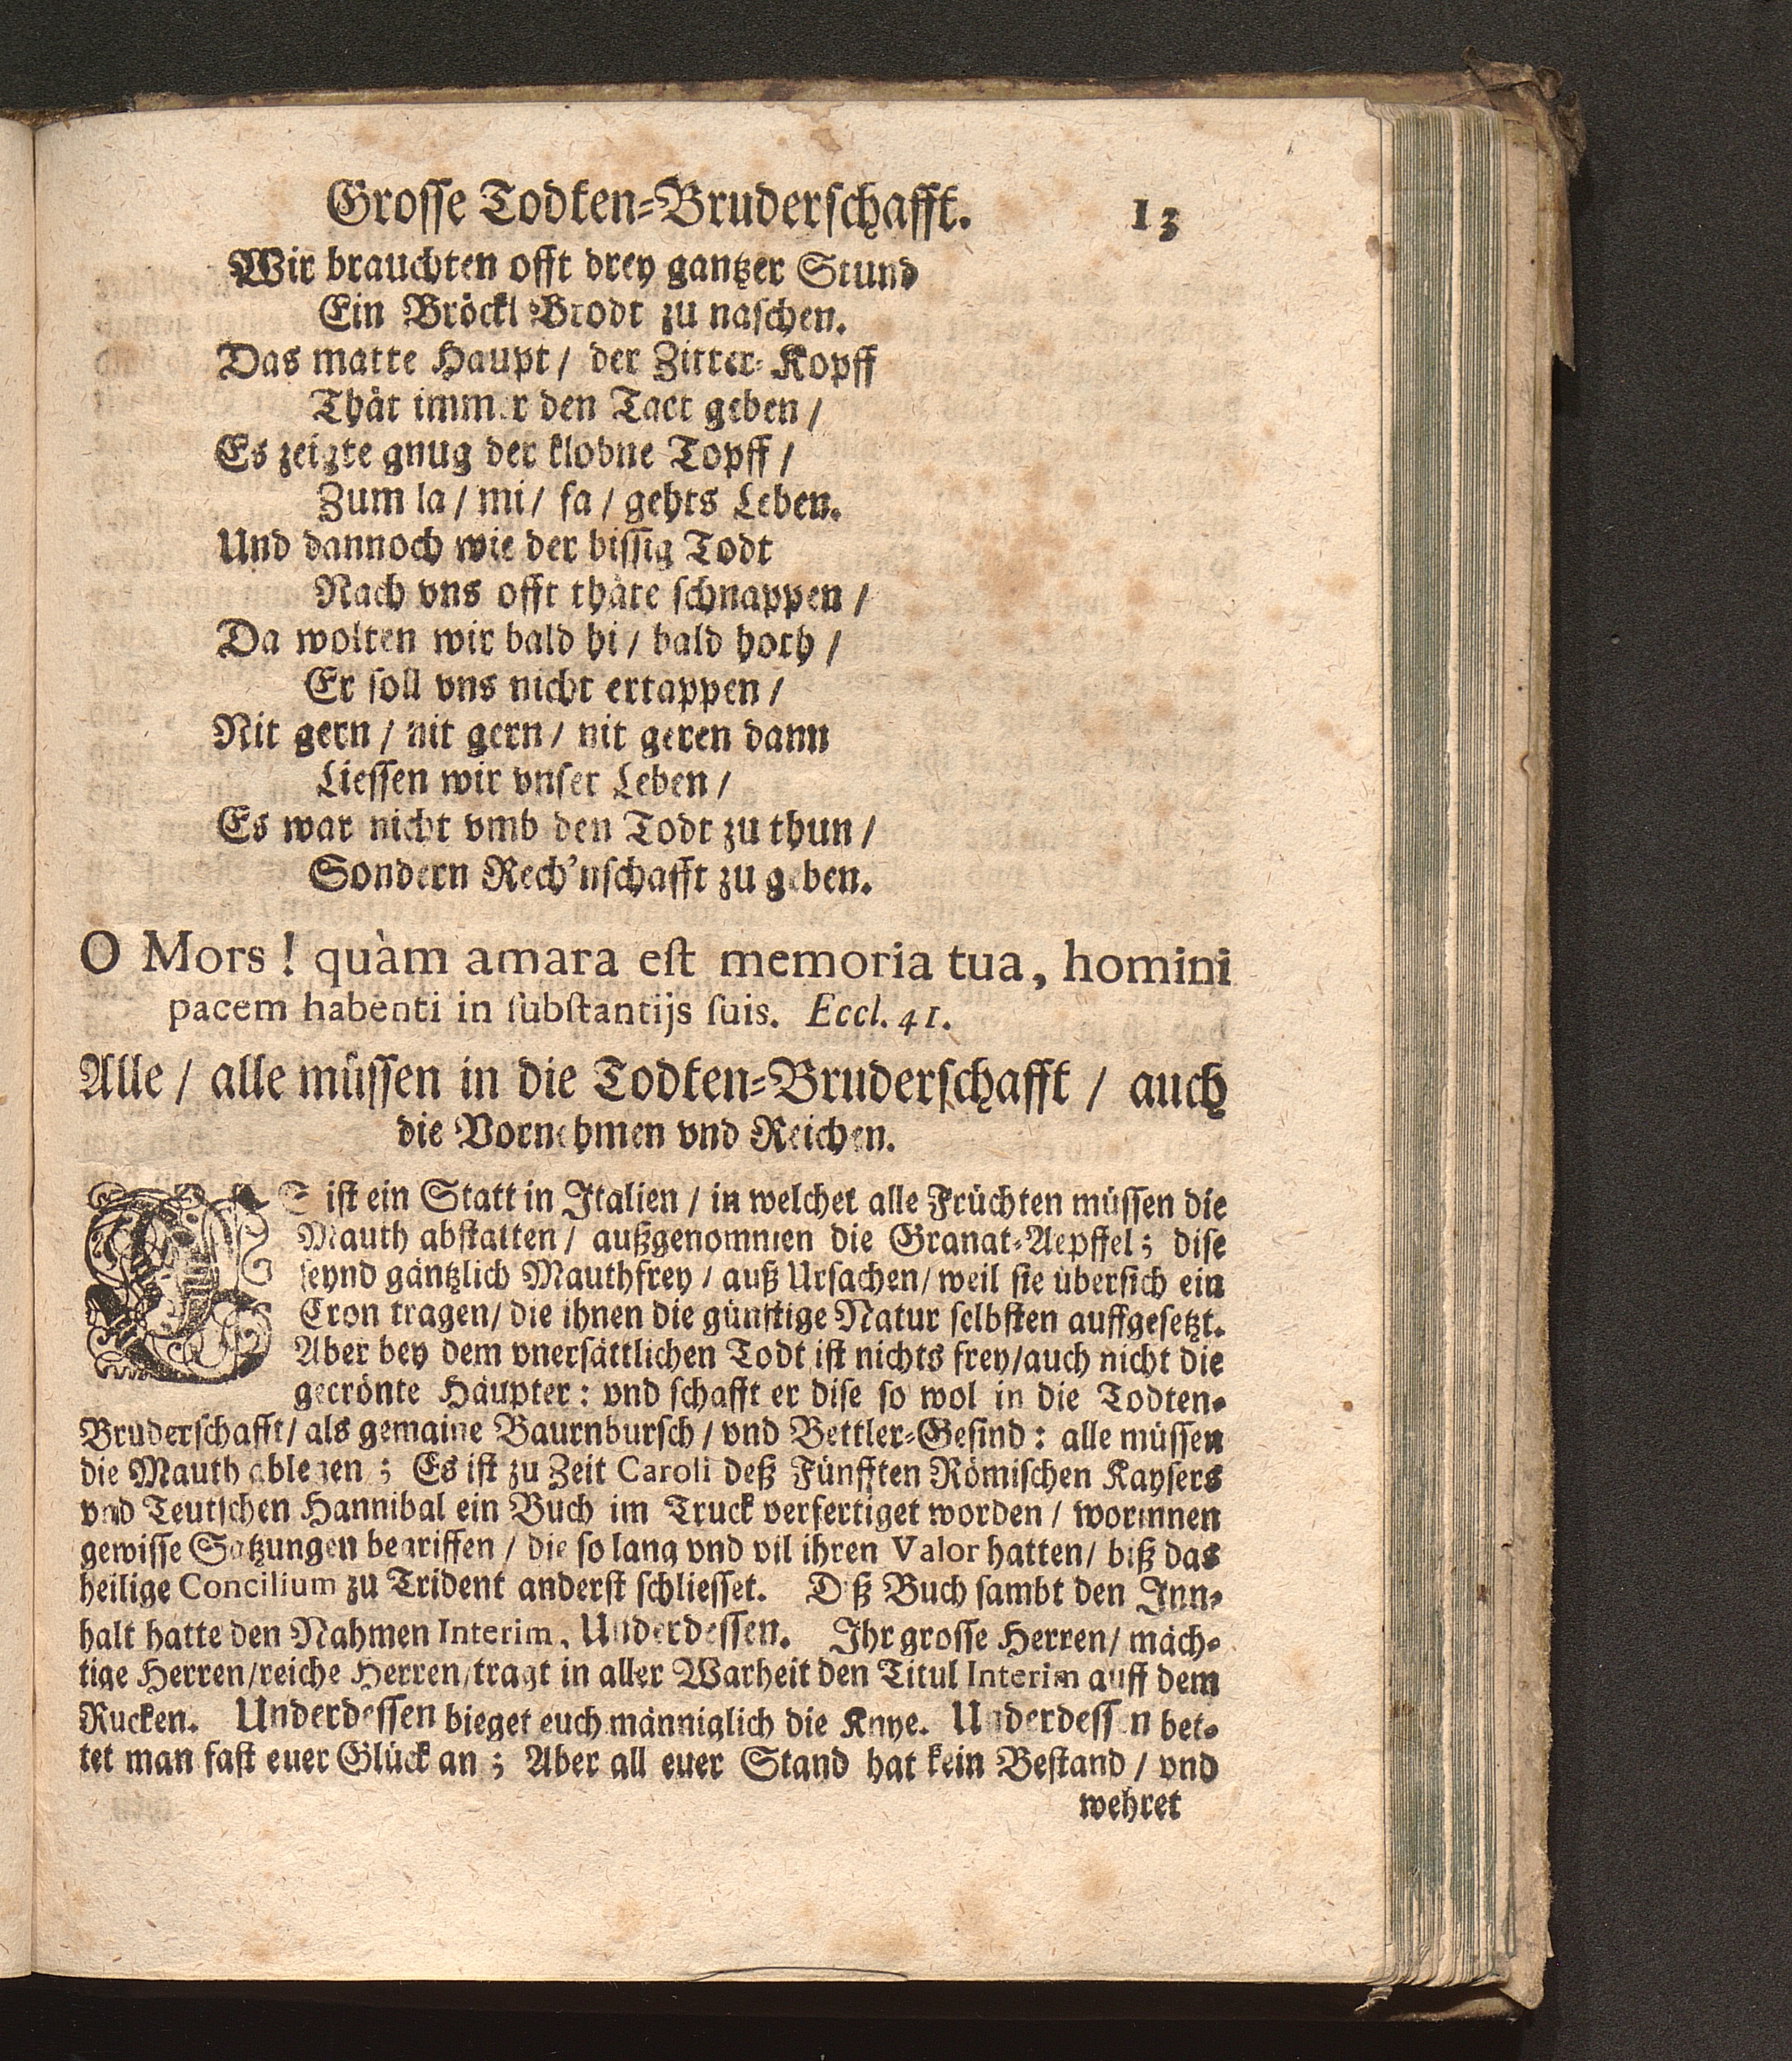 Grosse Todten-Bruderschafft. 13
Wir brauchten offt drey gantzer Stund
Ein Bröckl Brodt zu naschen.
Das matte Haupt / der Zitter-Kopff
Thät immer den Tact geben /
Es zeigte gnug der klobne Topff /
Zum la / mi / fa / gehts Leben.
Und dannoch wie der bissig Todt
Nach vns offt thäte schnappen /
Da wolten wir bald hi / bald hoth /
Er soll vns nicht ertappen /
Nit gern / nit gern / nit geren dann
Liessen wir vnser Leben /
Es war nicht vmb den Todt zu thun /
Sondern Rech'nschafft zu geben.
O Mors ! quàm amara est memoria tua, homini
pacem habenti in substantijs suis. Eccl. 41.
Alle / alle müssen in die Todten-Bruderschafft / auch
die Vornehmen vnd Reichen.
ES ist ein Statt in Italien / in welcher alle Früchten müssen die
Mauth abstatten / außgenommen die Granat-Aepffel; dise
seynd gäntzlich Mauthfrey / auß Ursachen / weil sie übersich ein
Cron tragen / die ihnen die günstige Natur selbsten auffgesetzt.
Aber bey dem vnersättlichen Todt ist nichts frey / auch nicht die
gecrönte Häupter : vnd schafft er dise so wol in die Todten-
Bruderschafft / als gemaine Baurnbursch / vnd Bettler-Gesind : alle müssen
die Mauth ablegen ; Es ist zu Zeit Caroli deß Fünfften Römischen Kaysers
vnd Teutschen Hannibal ein Buch im Truck verfertiget worden / worinnen
gewisse Satzungen begriffen / die so lang vnd vil ihren Valor hatten / biß das
heilige Concilium zu Trident anderst schliesset. Diß Buch sambt den Inn-
halt hatte den Nahmen Interim, Underdessen. Ihr grosse Herren / mäch-
tige Herren / reiche Herren / tragt in aller Warheit den Titul Interim auff dem
Rucken. Underdessen bieget euch männiglich die Knye. Underdessen bet-
tet man fast euer Glück an ; Aber all euer Stand hat kein Bestand / vnd
wehret